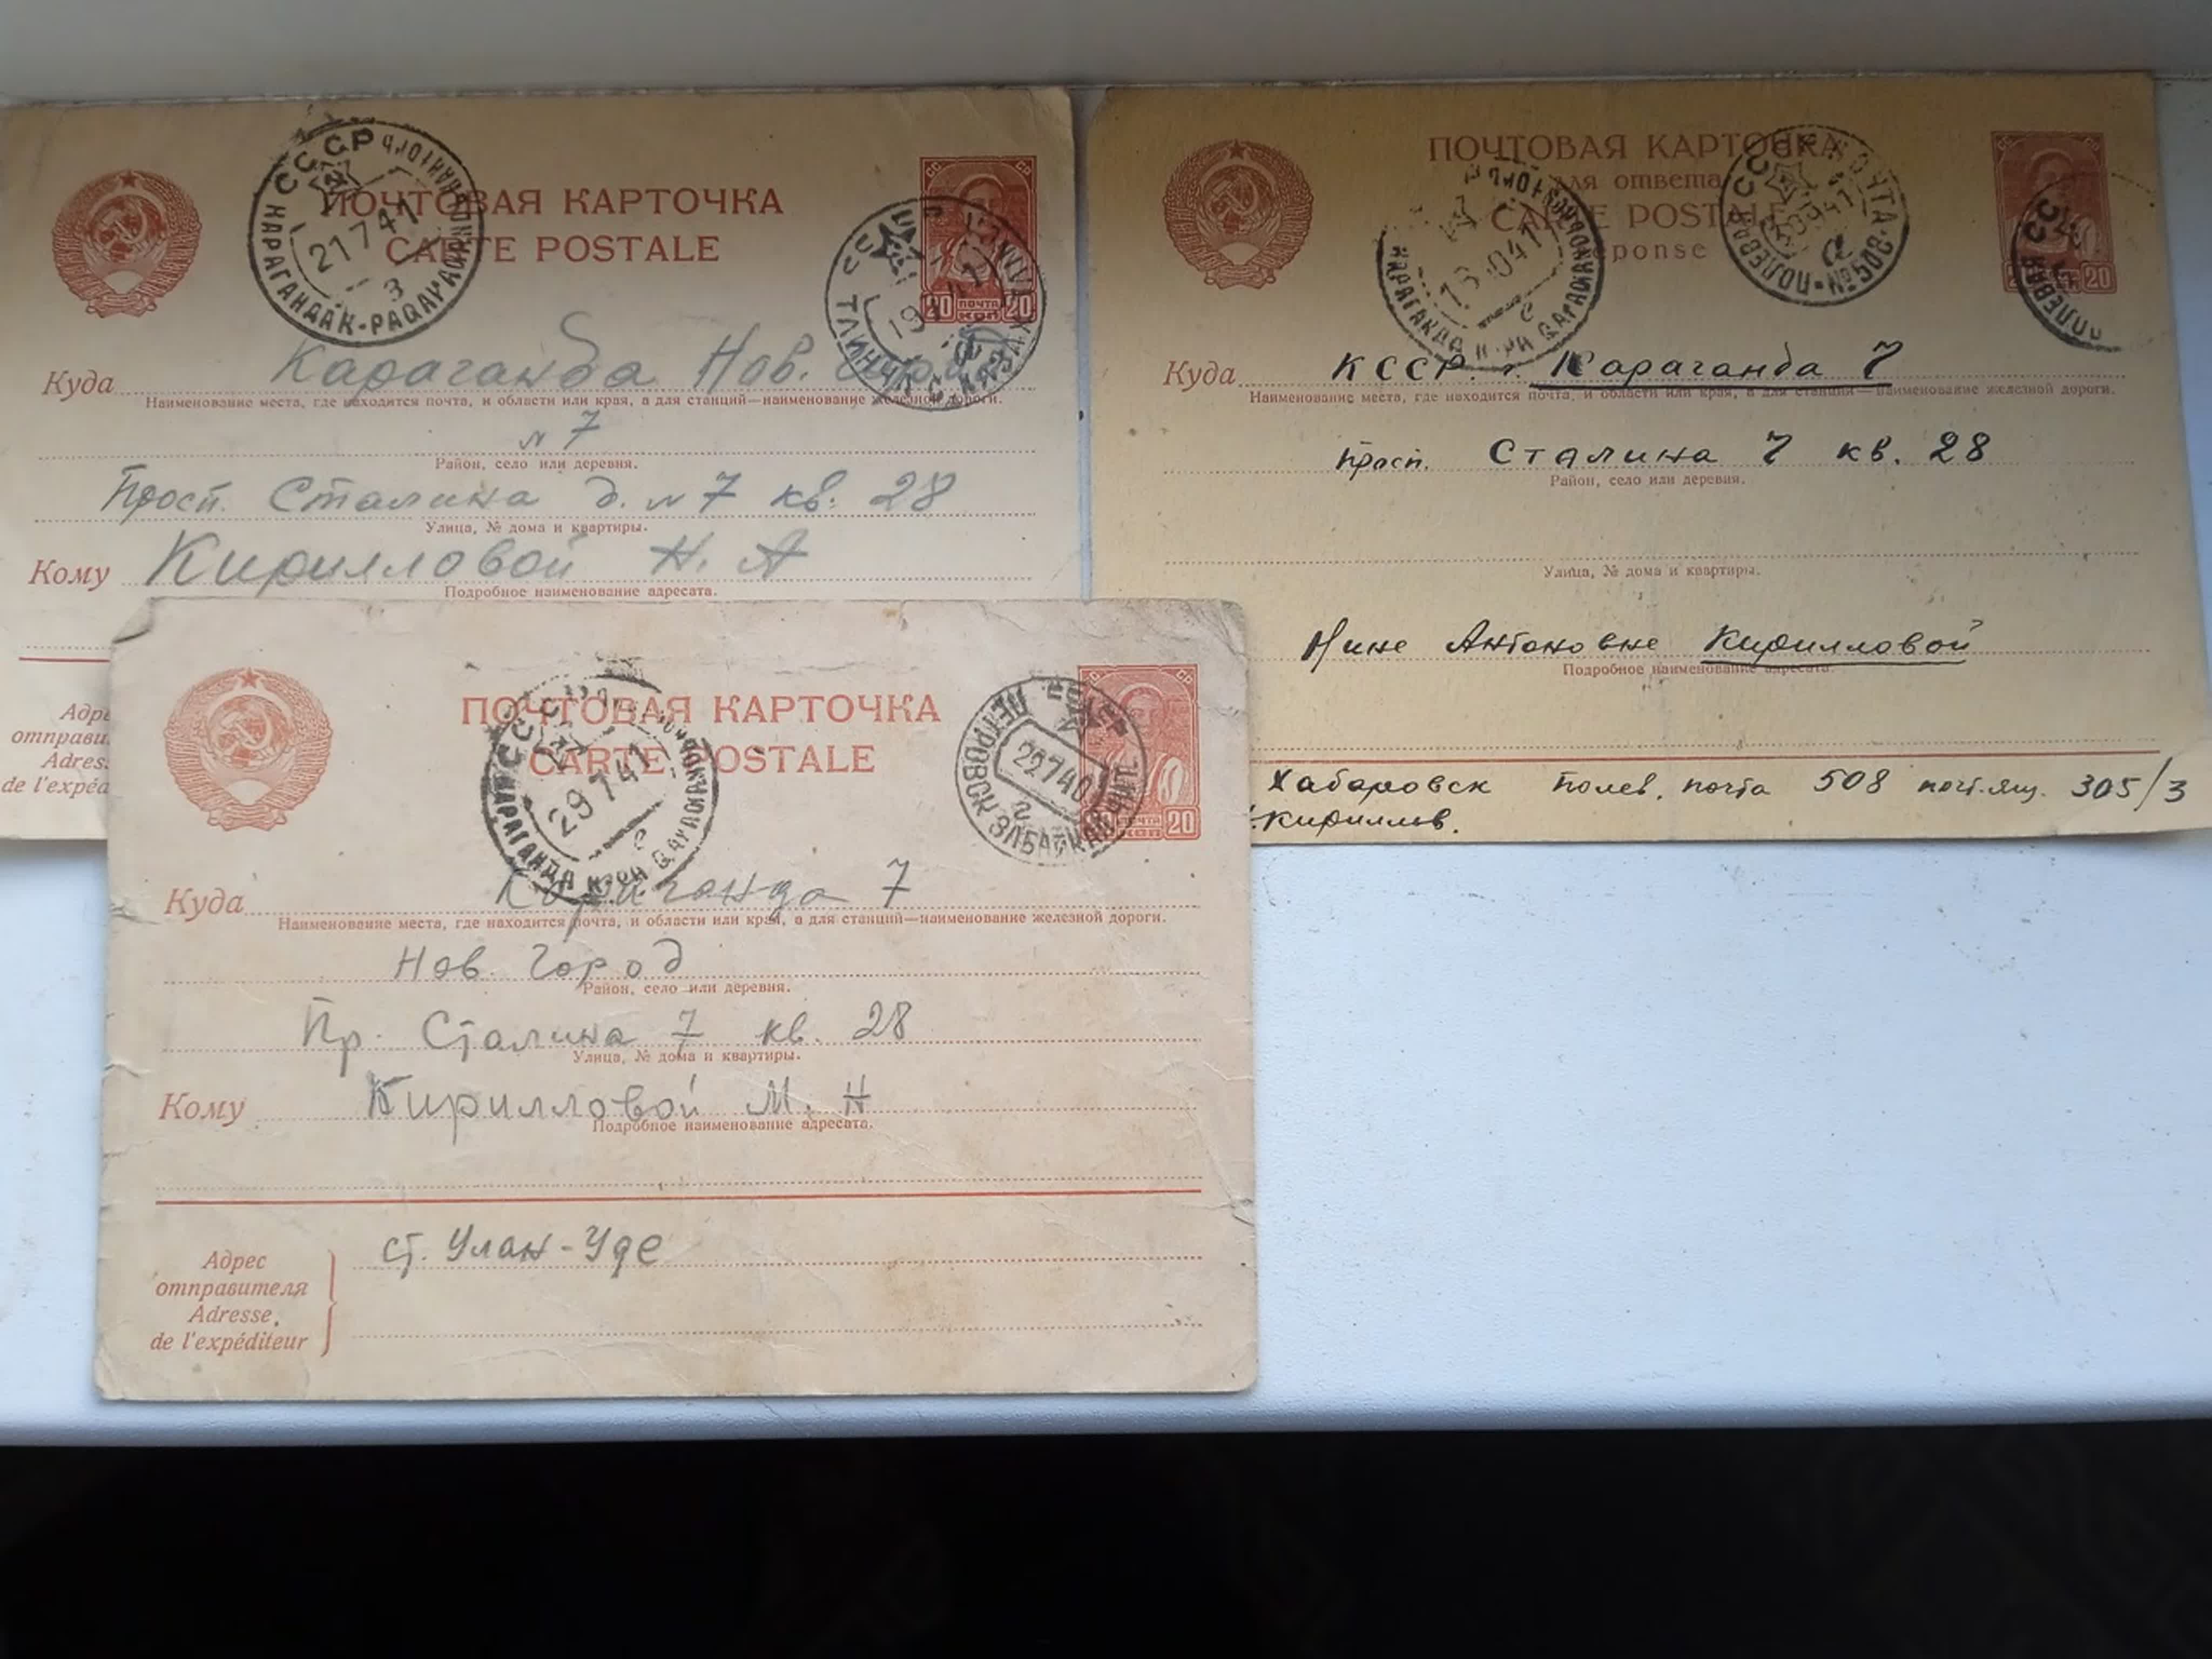 ПОЧТОВАЯ КАРТОЧКА
CARTE POSTALE
СССР
21 7 41
3
КАРАГАНДА
20 ПОЧТА 20
КОП
Куда Караганда Нов.
Наименование места, где находится почта, и области или края, а для станций—наименование железной дороги.
№ 7
Район, село или деревня.
Просп. Сталина д. № 7 кв. 28
Улица, № дома и квартиры.
Кому Кирилловой Н. А
Подробное наименование адресата.
Адре
отправи
Adres
de l'expéd
ПОЧТОВАЯ КАРТОЧКА
для ответа
CARTE POSTALE
réponse
КАРАГАНДА
ПОЛЕВАЯ ПОЧТА № 508
а
20
Куда КССР. г. Караганда 7
Наименование места, где находится почта, и области или края, а для станций—наименование железной дороги.
просп. Сталина 7 кв. 28
Район, село или деревня.
Улица, № дома и квартиры.
Нине Антоновне Кирилловой
Подробное наименование адресата.
Хабаровск полев. почта 508 почт. ящ. 305/3
Кириллов.
ПОЧТОВАЯ КАРТОЧКА
CARTE POSTALE
СССР
29 7 41
КАРАГАНДА
ПЕТРОВСК ЗАБАЙКАЛ ЧИТ.
22 7 40
ПОЧТА 20
КОП
Куда Караганда 7
Наименование места, где находится почта, и области или края, а для станций—наименование железной дороги.
Нов. Город
Район, село или деревня.
Пр. Сталина 7 кв. 28
Улица, № дома и квартиры.
Кому Кирилловой М. Н
Подробное наименование адресата.
Адрес
отправителя
Adresse
de l'expéditeur
ст. Улан-Уде